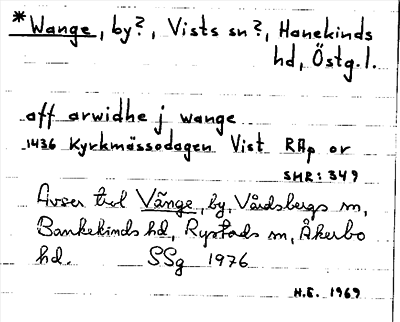 *Wange, by?, Vists sn?, Hanekinds
hd, Östg.l.
aff arwidhe j wange
1436 Kyrkmässodagen Vist RAp or
SMR: 349
Avser trol Vänge, by, Vårdsbergs sn,
Bankekinds hd, Rystads sn, Åkerbo
hd. SSg 1976
H.E. 1969